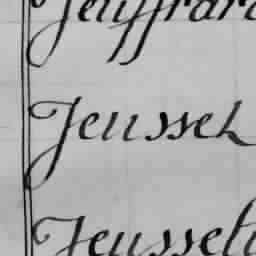 Jeuffrard
Jeussel
Jeusseli